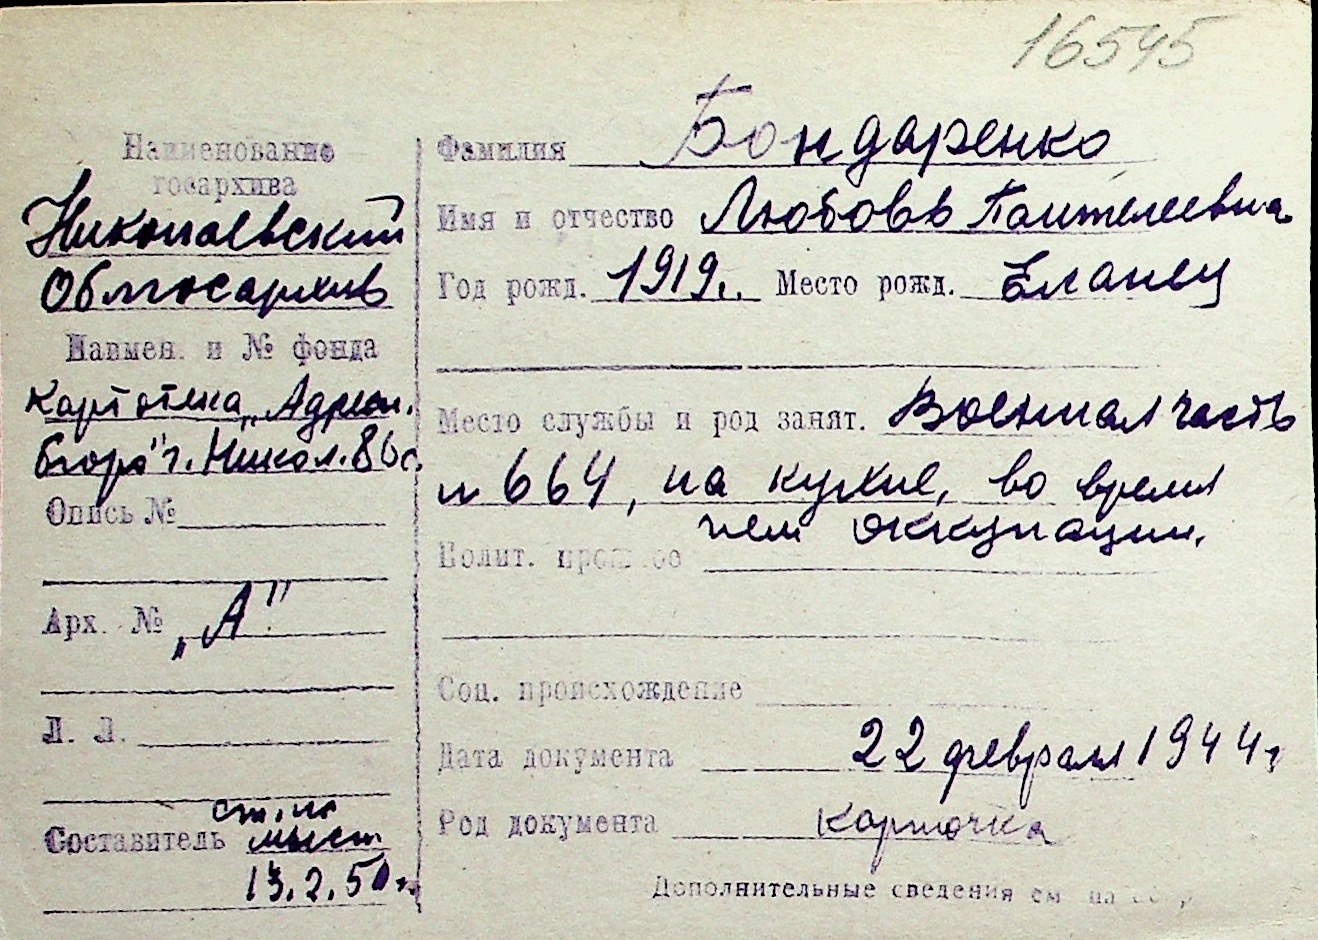 16545
Наименование
госархива
Николаевский
Облгосархив
Наимен. и № фонда
Картотека „Адресн.
бюро" г. Никол.
Опись №
Арх. № „А"
Л. Л.
Составитель
13.2.50г.
Фамилия Бондаренко
Имя и отчество Любовь Пантелеевна
Год рожд. 1919г. Место рожд. Еланец
Место службы и род занят. Военная часть
н 664, на кухне, во время
нем оккупации.
Полит. прошлое
Соц. происхождение
Дата документа 22 февраля 1944г
Род документа карточка
Дополнительные сведения см на